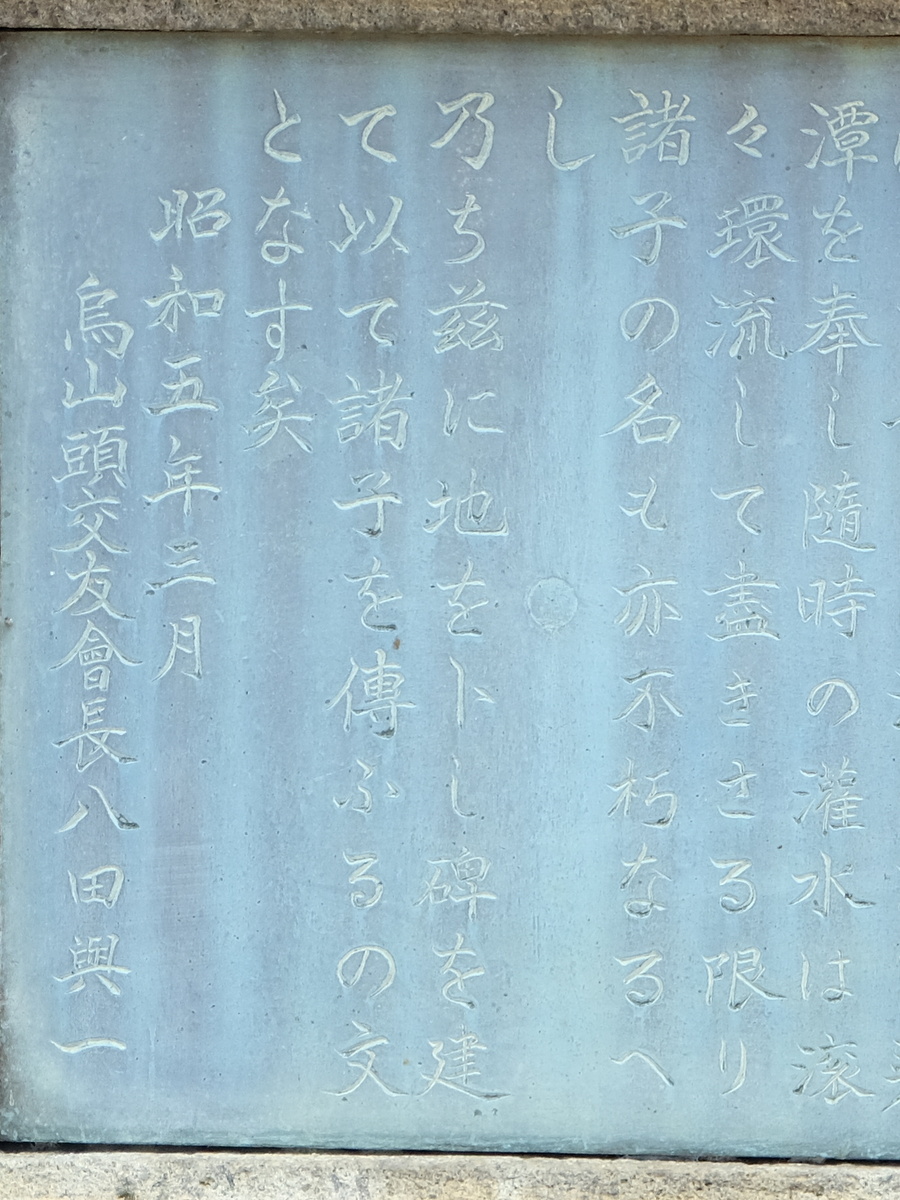 潭を奉し隨時の灌水は滾
々環流して盡きさる限り
諸子の名も亦不朽なるへ
し
乃ち茲に地を卜し碑を建
て以て諸子を傳ふるの文
となす矣
昭和五年三月
烏山頭交友會長八田與一